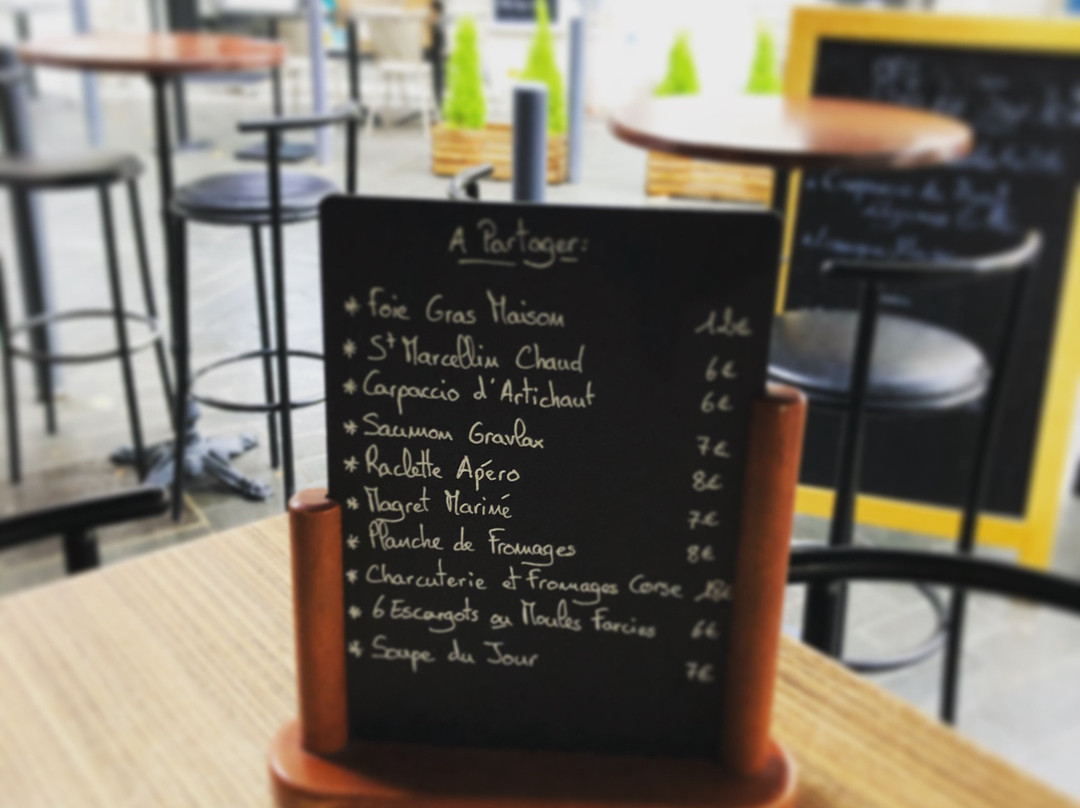 A Partager:
* Foie Gras Maison 12€
* St Marcellin Chaud 6€
* Carpaccio d'Artichaut 6€
* Saumon Gravlax 7€
* Raclette Apéro 8€
* Magret Mariné 7€
* Planche de Fromages 8€
* Charcuterie et Fromages Corse
* 6 Escargots ou Moules Farcies 6€
* Soupe du Jour 7€